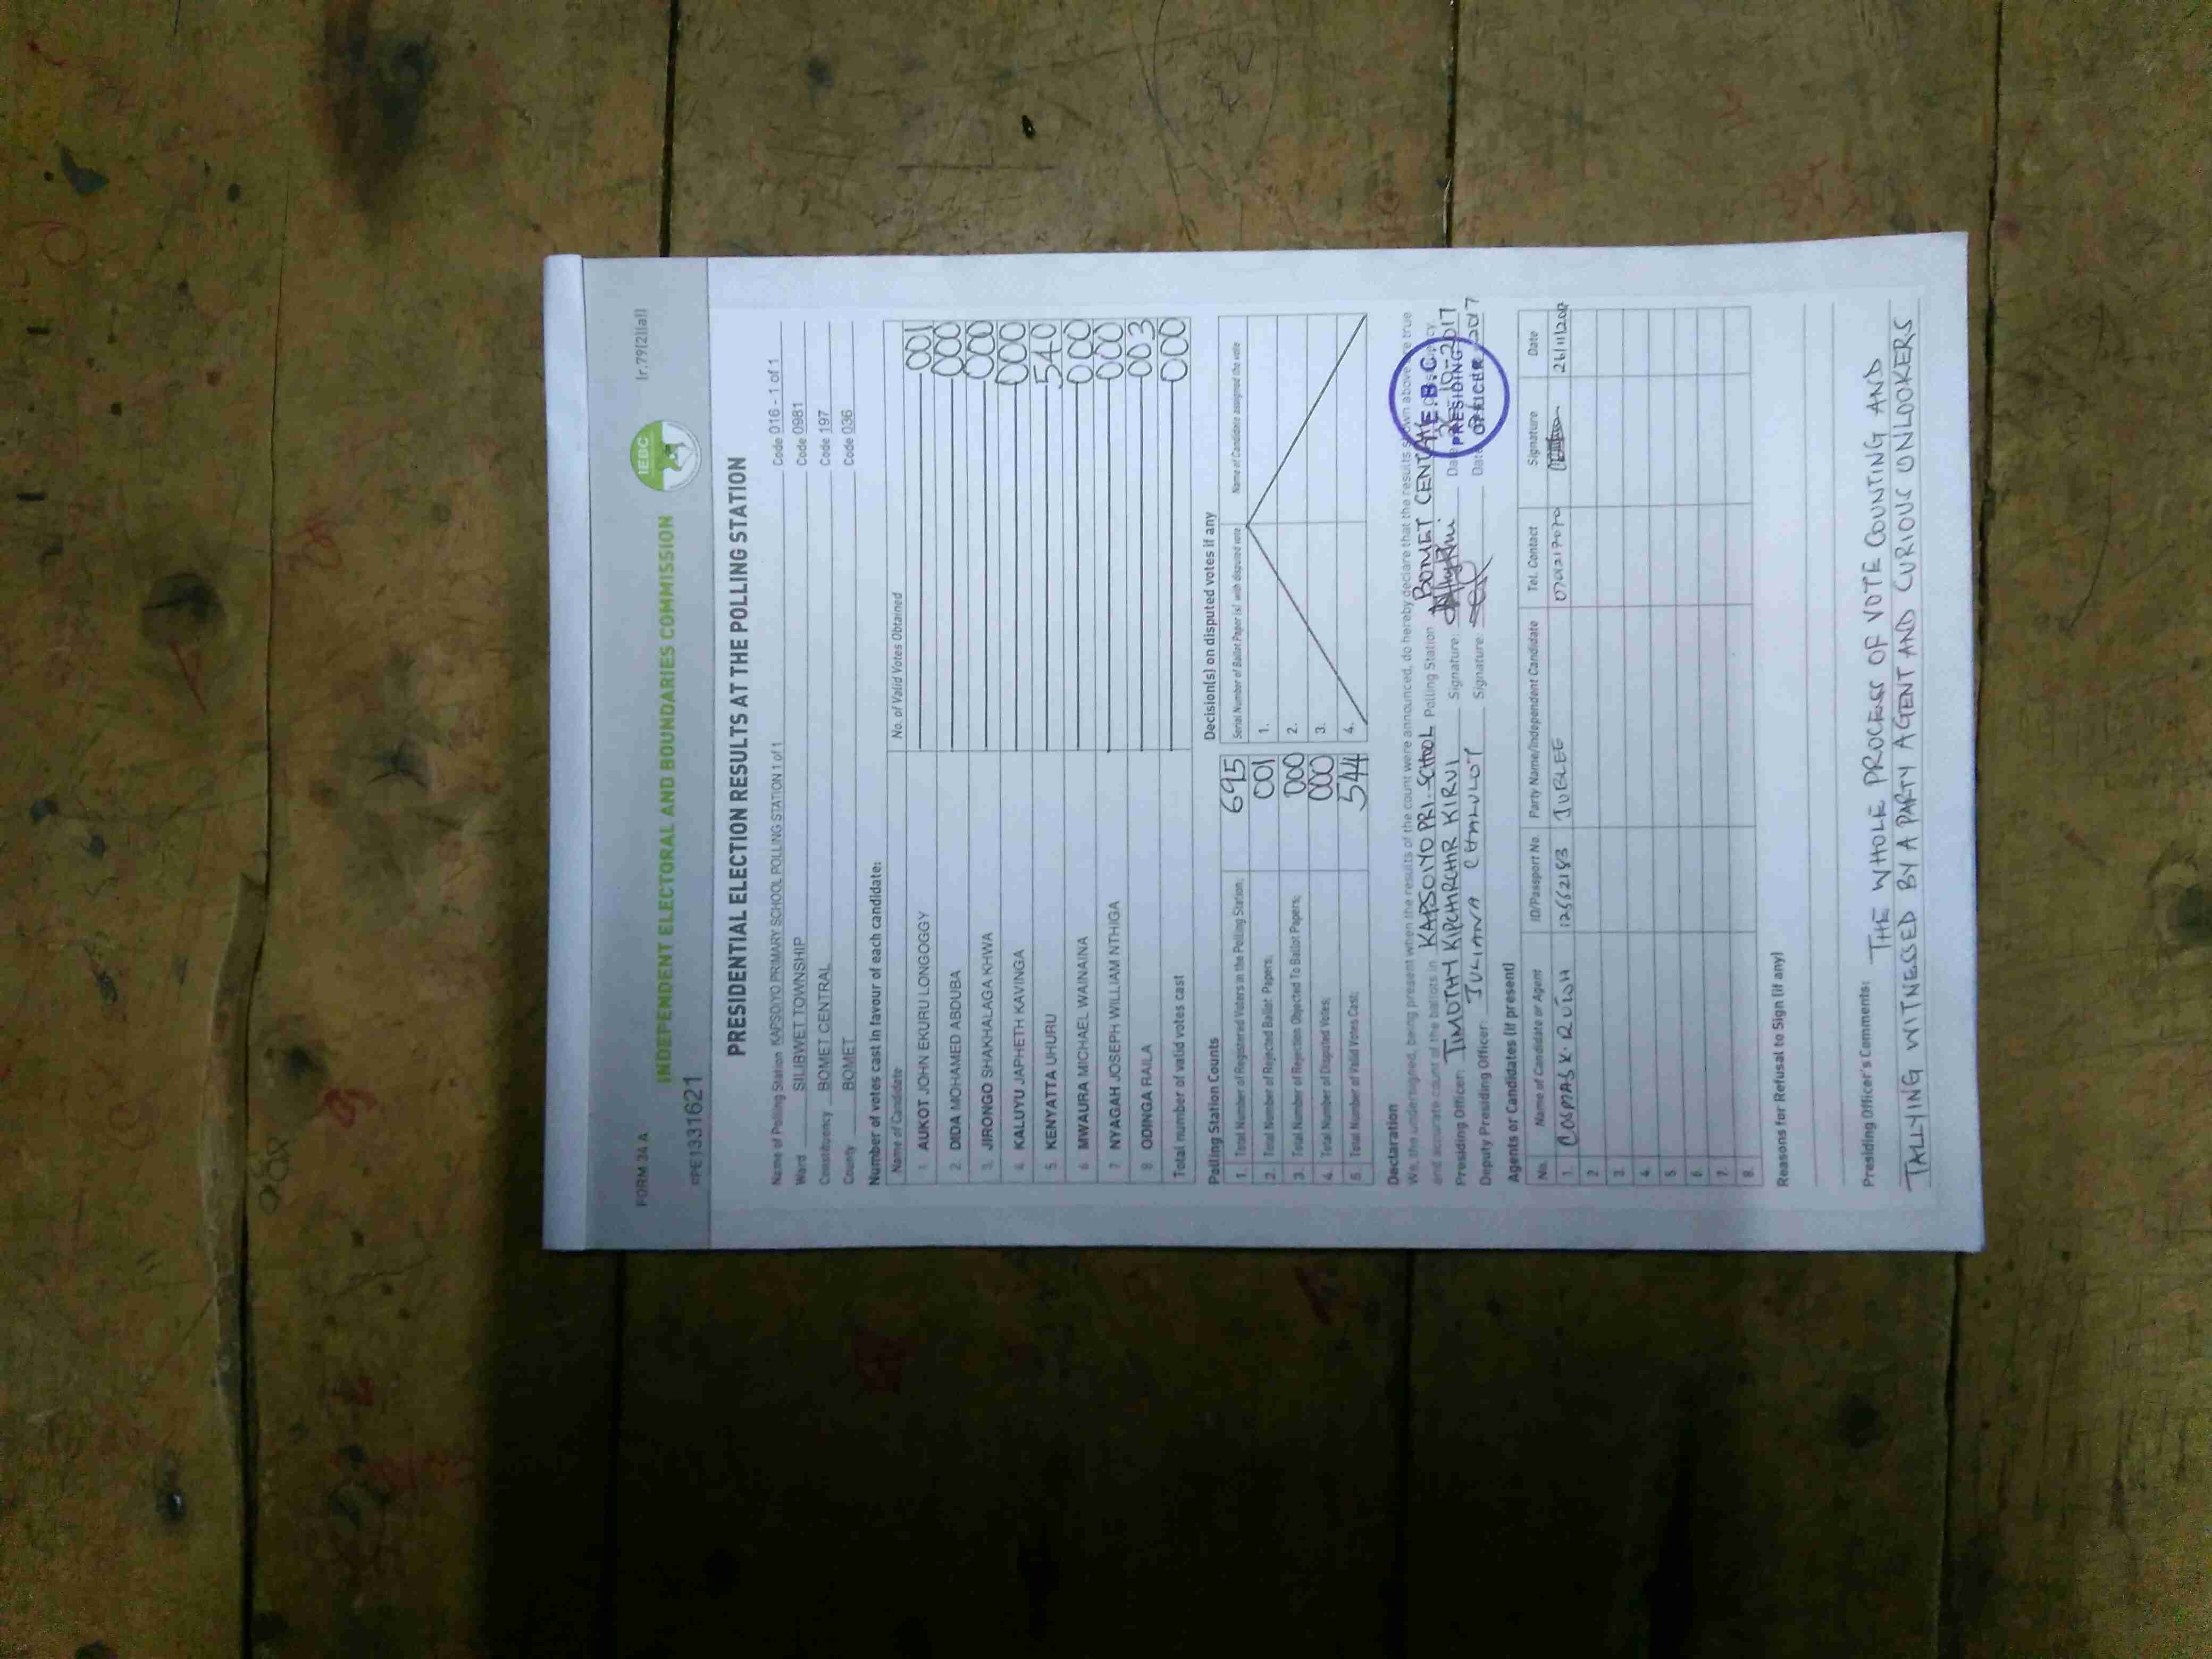 FORM 34 A
INDEPENDENT ELECTORAL AND BOUNDARIES COMMISSION
IEBC
(r.79(2)(a))
#PE1331621
PRESIDENTIAL ELECTION RESULTS AT THE POLLING STATION
Name of Polling Station KAPSOIYO PRIMARY SCHOOL POLLING STATION 1 of 1 Code 016 - 1 of 1
Ward SILIBWET TOWNSHIP Code 0981
Constituency BOMET CENTRAL Code 197
County BOMET Code 036
Number of votes cast in favour of each candidate:
Name of Candidate No. of Valid Votes Obtained
1. AUKOT JOHN EKURU LONGOGGY 001
2. DIDA MOHAMED ABDUBA 000
3. JIRONGO SHAKHALAGA KHWA 000
4. KALUYU JAPHETH KAVINGA 000
5. KENYATTA UHURU 540
6 MWAURA MICHAEL WAINAINA 000
7. NYAGAH JOSEPH WILLIAM NTHIGA 000
8 ODINGA RAILA 003
Total number of valid votes cast 000
Polling Station Counts
1. Total Number of Registered Voters in the Polling Station; 695
2. Total Number of Rejected Ballot Papers; 001
3. Total Number of Rejection Objected To Ballot Papers; 000
4. Total Number of Disputed Votes; 000
5 Total Number of Valid Votes Cast; 544
Decision(s) on disputed votes if any
Serial Number of Ballot Paper (s) with disputed vote Name of Candidate assigned the vote
1.
2.
3.
4.
Declaration
We, the undersigned, being present when the results of the count were announced, do hereby declare that the results shown above are true
and accurate count of the ballots in KAPSOIYO PRI. SCHOOL Polling Station BOMET CENTRAL
Presiding Officer: TIMOTHY KIPCHIRCHIR KIRUI Signature: Date 2017
Deputy Presiding Officer: JULIANA Signature: Date 2017
I.E.B.C
PRESIDING
OFFICER
Agents or Candidates (if present)
No. Name of Candidate or Agent ID/Passport No. Party Name/Independent Candidate Tel. Contact Signature Date
1. COSMAS K. RUTOH JUBLEE
2
3.
4.
5
6.
7.
8.
Reasons for Refusal to Sign (if any)
Presiding Officer's Comments: THE WHOLE PROCESS OF VOTE COUNTING AND
TALLYING WITNESSED BY A PARTY AGENT AND CURIOUS ONLOOKERS